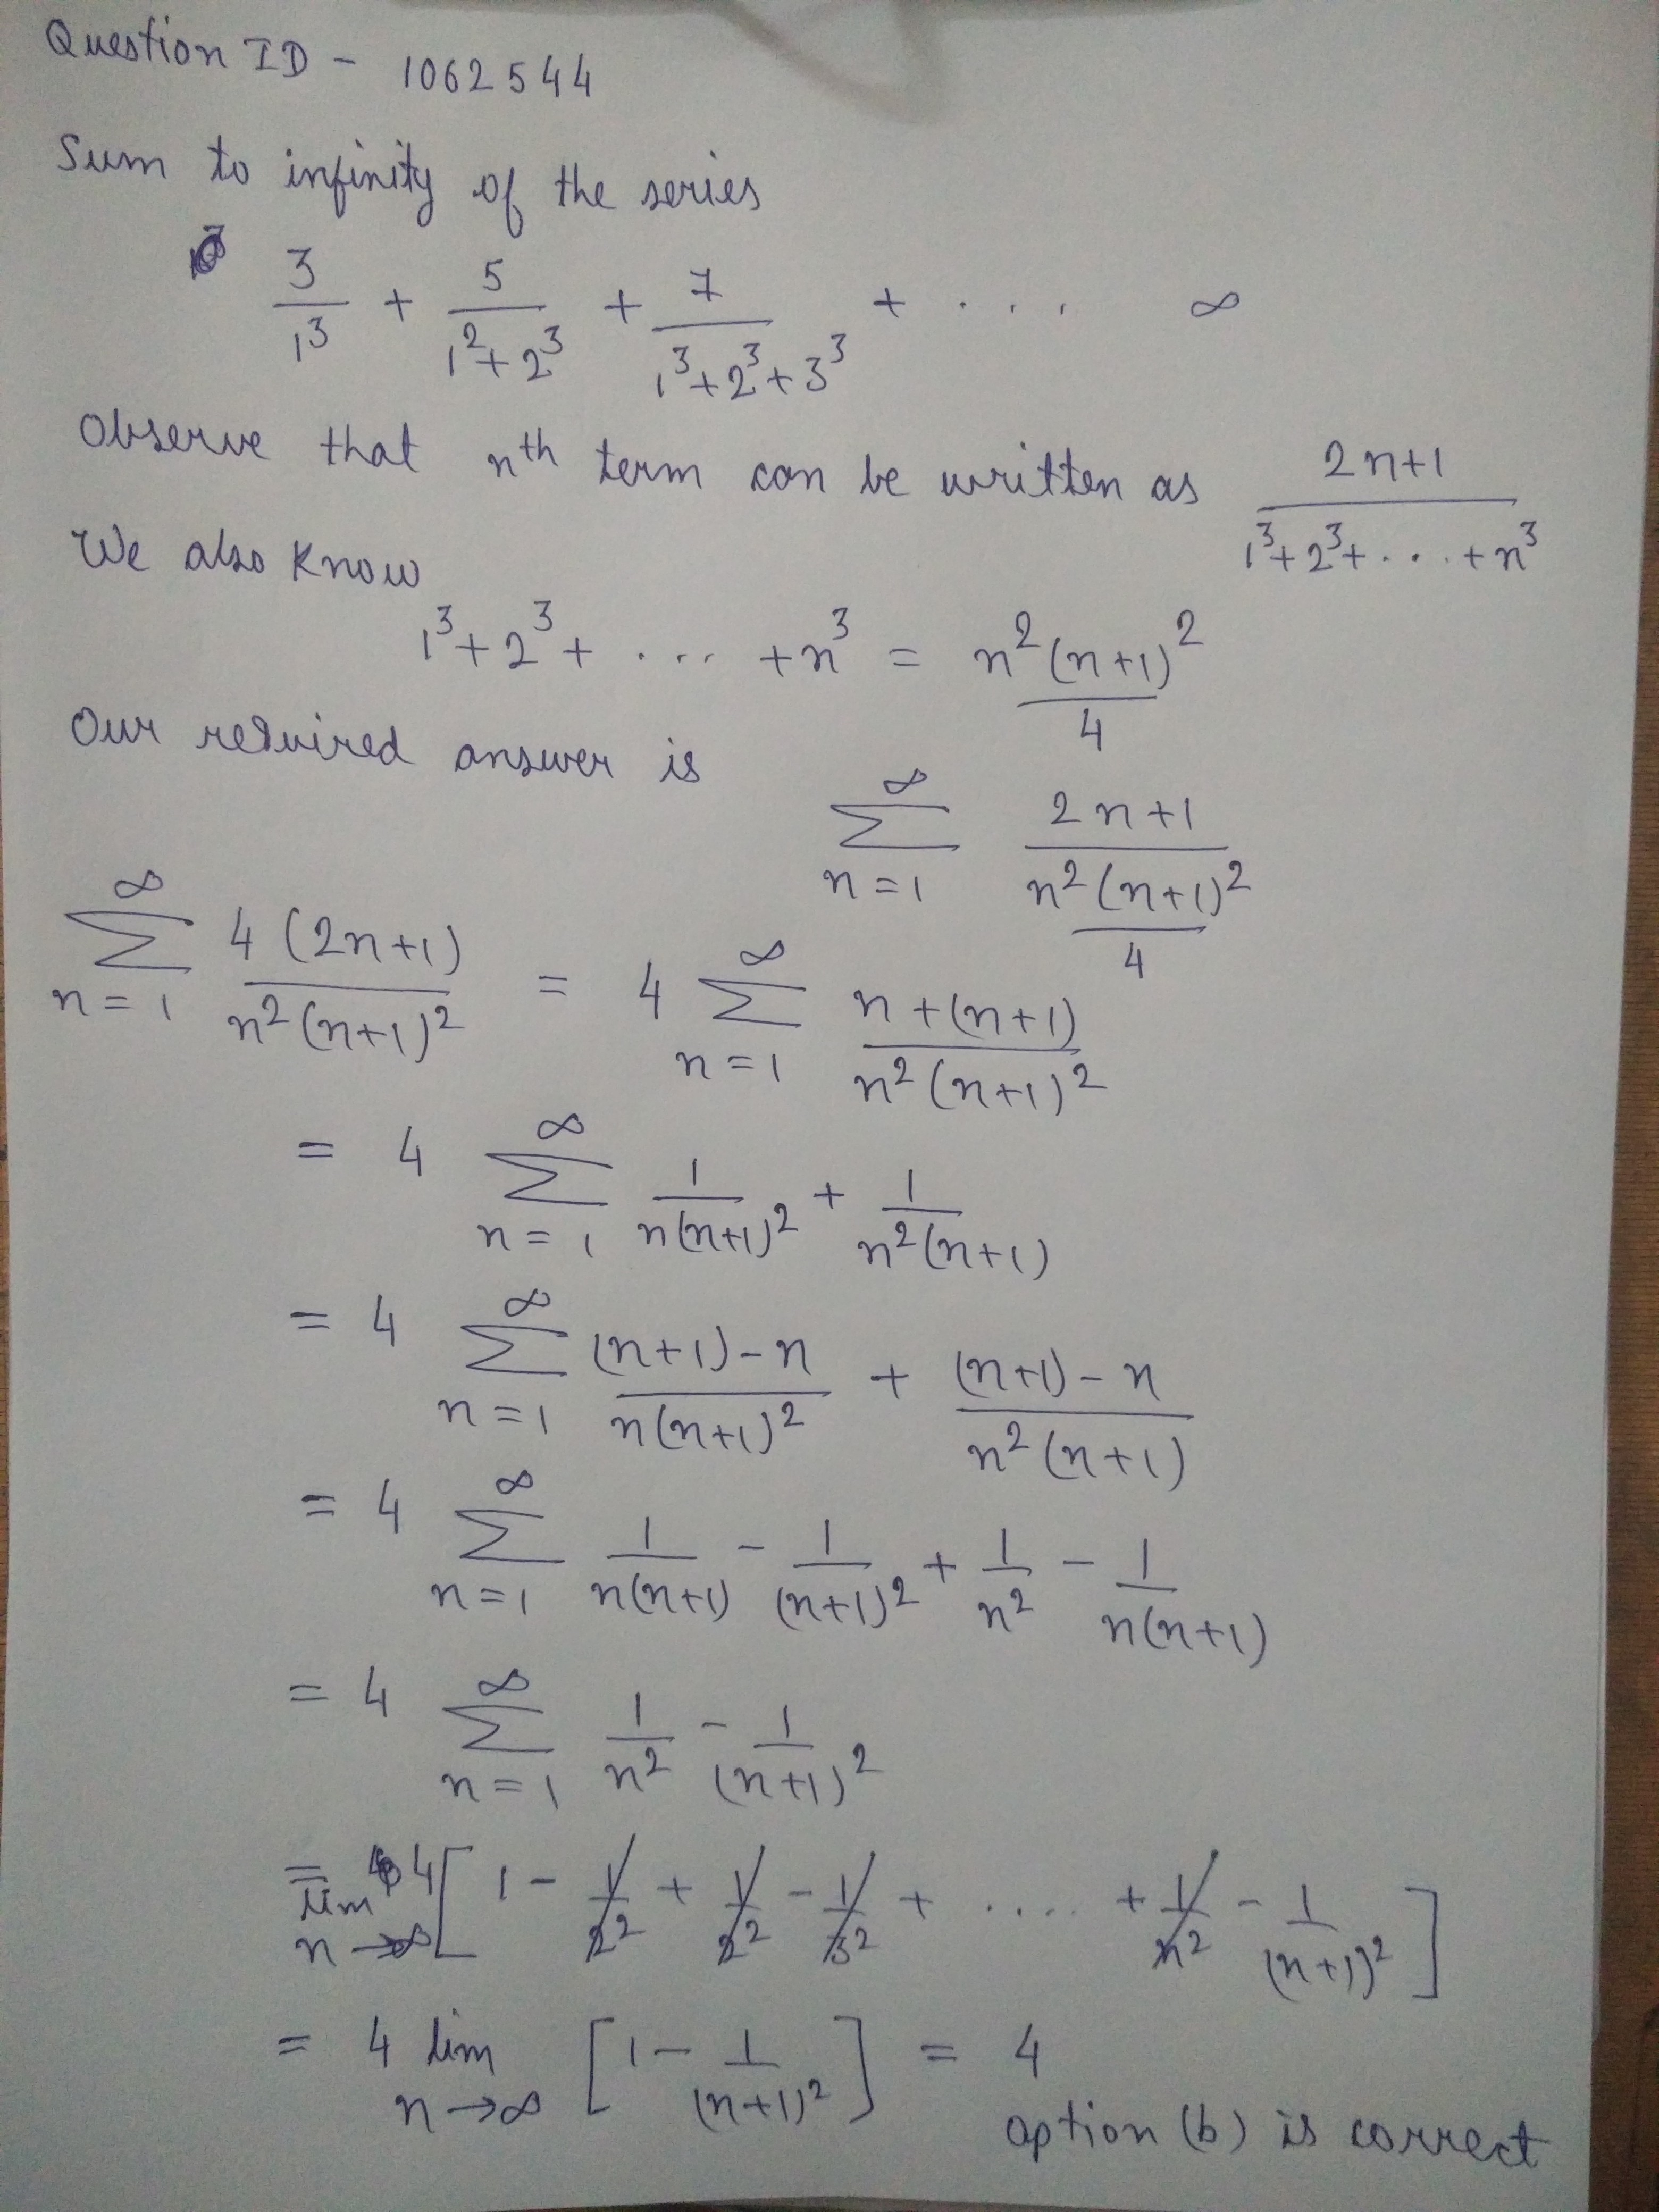 Question ID - 1062544
Sum to infinity of the series
3/1³ + 5/1²+2³ + 7/1³+2³+3³ + . . . . ∞
Observe that nth term can be written as 2n+1/1³+2³+. . . +n³
We also know
1³+2³+ . ... +n³ = n²(n+1)²/4
Our required answer is
∞∑n=1 2n+1/n²(n+1)²/4
∞∑n=1 4(2n+1)/n²(n+1)² = 4 ∞∑n=1 n+(n+1)/n²(n+1)²
= 4 ∞∑n=1 1/n(n+1)² + 1/n²(n+1)
= 4 ∞∑n=1 (n+1)-n/n(n+1)² + (n+1)-n/n²(n+1)
= 4 ∞∑n=1 1/n(n+1) - 1/(n+1)² + 1/n² - 1/n(n+1)
= 4 ∞∑n=1 1/n² - 1/(n+1)²
= lim n→∞ 4[1 - 1/2² + 1/2² - 1/3² + .... + 1/n² - 1/(n+1)²]
= 4 lim n→∞ [1 - 1/(n+1)²] = 4
option (b) is correct